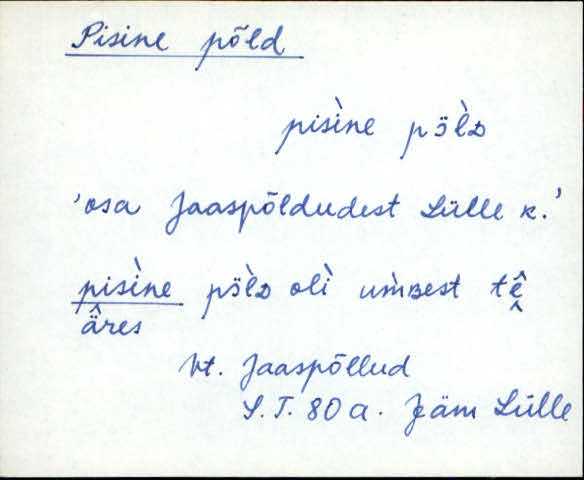 Pisine põld
pisìne põl̀D
'osa Jaaspõldudest Lülle k.'
pisìne põl̀D olì um̀BEst tê
äres
Vt. Jaaspõllud
S.T. 80 a. Jäm Lülle